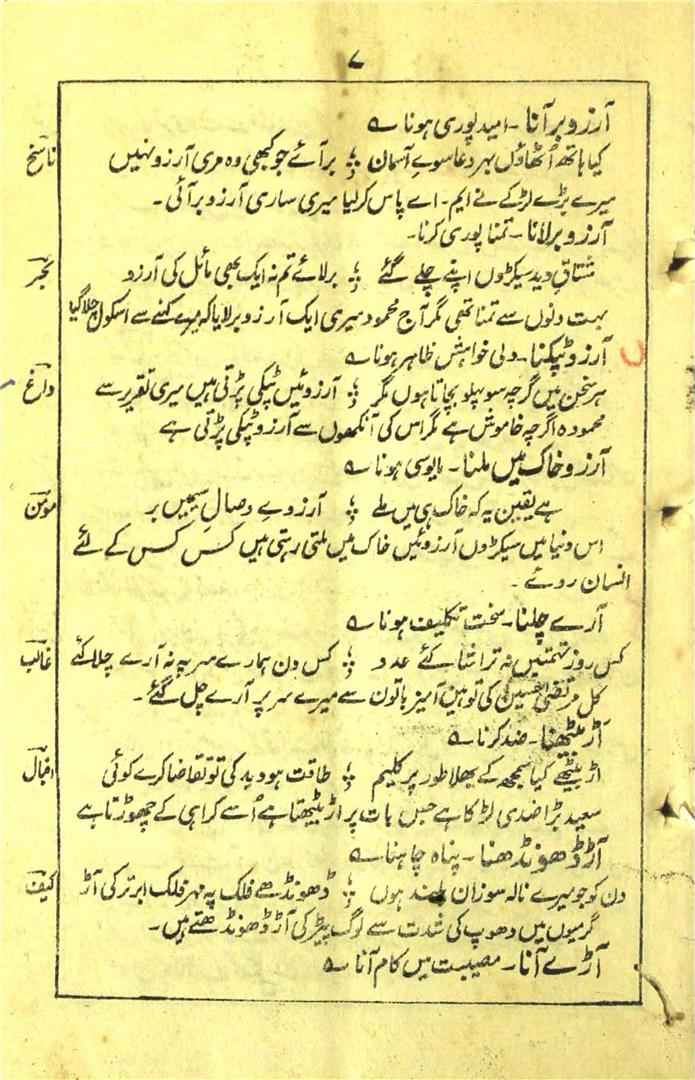 ۷
آرزو بر آنا ۔ امید پوری ہونا ؎
کیا ہاتھ اُٹھاؤں بہر دعا سوے آسمان ؛ بر آئے جو کبھی وہ مری آرزو نہیں ناسخ
میرے بڑے لڑکے نے ایم۔ اے پاس کر لیا میری ساری آرزو بر آئی ۔
آرزو بر لانا ۔ تمنا پوری کرنا۔
مشتاقِ دید سیکڑوں اپنے چلے گئے ؛ بر لائے تم نہ ایک بھی مائل کی آرزو
بہت دنوں سے تمنا تھی مگر آج محمود میری ایک آرزو بر لایا کہ میرے کہنے سے اسکول چلا گیا
آرزو ٹپکنا ۔ دلی خواہش ظاہر ہونا ؎
ہر سخن میں گرچہ سو پہلو بچاتا ہوں مگر ؛ آرزوئیں ٹپکی پڑتی ہیں میری تقریر سے داغ
محمودہ اگرچہ خاموش ہے مگر اس کی آنکھوں سے آرزو ٹپکی پڑتی ہے
آرزو خاک میں ملنا ۔ مایوسی ہونا ؎
ہے یقین یہ کہ خاک ہی میں ملے ؛ آرزوے وصالِ سیمیں بر مومن
اس دنیا میں سیکڑوں آرزوئیں خاک میں ملتی رہتی ہیں کس کس کے لئے
انسان روئے ۔
آرے چلنا ۔ سخت تکلیف ہونا ؎
کس روز تہمتیں نہ تراشا کئے عدو ؛ کس دن ہمارے سر پہ نہ آرے چلا کئے غالب
کل مرتضیٰ حسین کی توہین آمیز باتون سے میرے سر پر آرے چل گئے ۔
اڑ بیٹھنا ۔ ضد کرنا ؎
اڑ بیٹھے کیا سمجھ کے بھلا طور پر کلیم ؛ طاقت ہو دید کی تو تقاضا کرے کوئی اقبال
سعید بڑا ضدی لڑکا ہے جس بات پر اڑ بیٹھتا ہے اُسے کرا ہی کے چھوڑتا ہے
آڑ ڈھونڈھنا ۔ پناہ چاہنا ؎
دن کو جو میرے نالہ سوزان بلند ہوں ؛ ڈھونڈھے فلک پہ مہر فلک ابر تر کی آڑ کیف
گرمیوں میں دھوپ کی شدت سے لوگ پیڑ کی آڑ ڈھونڈھتے ہیں ۔
آڑے آنا ۔ مصیبت میں کام آنا ؎